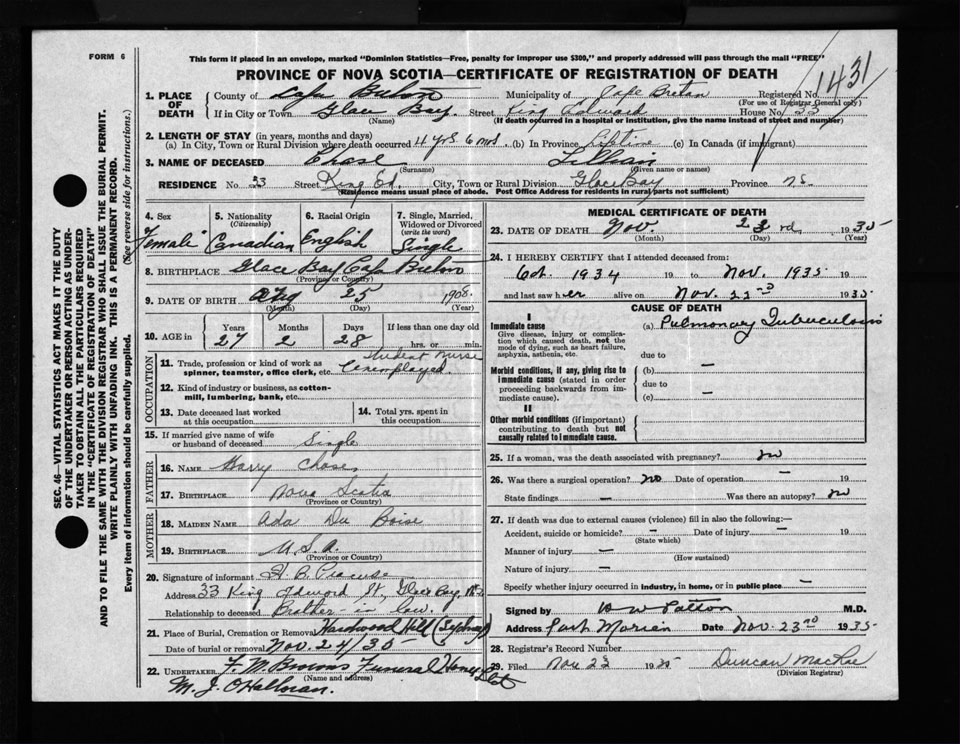 FORM 6
This form if placed in an envelope, marked "Dominion Statistics—Free, penalty for improper use $300," and properly addressed will pass through the mail "FREE"
PROVINCE OF NOVA SCOTIA—CERTIFICATE OF REGISTRATION OF DEATH
1431
1. PLACE OF DEATH
County of Cape Breton Municipality of Cape Breton Registered No.
(For use of Registrar General only)
If in City or Town Glace Bay Street King Edward House No. 33
(Name) (If death occurred in a hospital or institution, give the name instead of street and number)
2. LENGTH OF STAY (in years, months and days)
(a) In City, Town or Rural Division where death occurred 4 yrs 6 mos. (b) In Province Lifetime (c) In Canada (if immigrant)
3. NAME OF DECEASED Chase Lillian
(Surname) (Given name or names)
RESIDENCE No. 33 Street King Ed. City, Town or Rural Division Glace Bay Province N.S.
(Residence means usual place of abode. Post Office Address for residents in rural parts not sufficient)
4. Sex Female
5. Nationality (Citizenship) Canadian
6. Racial Origin English
7. Single, Married, Widowed or Divorced (write the word) Single
8. BIRTHPLACE Glace Bay Cape Breton
(Province or Country)
9. DATE OF BIRTH Aug 25 1908
(Month) (Day) (Year)
10. AGE in Years Months Days If less than one day old
27 2 28 hrs. or min.
OCCUPATION
11. Trade, profession or kind of work as spinner, teamster, office clerk, etc. Student Nurse Unemployed.
12. Kind of industry or business, as cotton-mill, lumbering, bank, etc.
13. Date deceased last worked at this occupation
14. Total yrs. spent in this occupation
15. If married give name of wife or husband of deceased Single
FATHER
16. NAME Harry Chase
17. BIRTHPLACE Nova Scotia
(Province or Country)
MOTHER
18. MAIDEN NAME Ada Du Boise
19. BIRTHPLACE U.S.A.
(Province or Country)
20. Signature of informant
Address 33 King Edward St, Glace Bay, N.S.
Relationship to deceased Brother-in law.
21. Place of Burial, Cremation or Removal Hardwood Hill (Sydney)
Date of burial or removal Nov. 24/35
22. UNDERTAKER Funeral Home
(Name and address)
M. J. O'Halloran.
MEDICAL CERTIFICATE OF DEATH
23. DATE OF DEATH Nov. 23rd, 1935
(Month) (Day) (Year)
24. I HEREBY CERTIFY that I attended deceased from:
Oct. 1934 19 to Nov. 1935 19
and last saw her alive on Nov. 22nd 1935
CAUSE OF DEATH
I
Immediate cause
Give disease, injury or complication which caused death, not the mode of dying, such as heart failure, asphyxia, asthenia, etc.
(a) Pulmonary Tuberculosis
due to
Morbid conditions, if any, giving rise to immediate cause (stated in order proceeding backwards from immediate cause).
(b) —
due to
(c) —
II
Other morbid conditions (if important) contributing to death but not causally related to immediate cause.
25. If a woman, was the death associated with pregnancy? no
26. Was there a surgical operation? no Date of operation —
State findings — Was there an autopsy? no
27. If death was due to external causes (violence) fill in also the following:—
Accident, suicide or homicide? — Date of injury — 19
(State which)
Manner of injury —
(How sustained)
Nature of injury —
Specify whether injury occurred in industry, in home, or in public place —
Signed by Patton M.D.
Address Port Morien Date Nov. 23rd 1935
28. Registrar's Record Number
29. Filed Nov 23 1935 Duncan MacRae
(Division Registrar)
SEC. 46—VITAL STATISTICS ACT MAKES IT THE DUTY
OF THE UNDERTAKER OR PERSON ACTING AS UNDER-
TAKER TO OBTAIN ALL THE PARTICULARS REQUIRED
IN THE "CERTIFICATE OF REGISTRATION OF DEATH"
AND TO FILE THE SAME WITH THE DIVISION REGISTRAR WHO SHALL ISSUE THE BURIAL PERMIT.
WRITE PLAINLY WITH UNFADING INK. THIS IS A PERMANENT RECORD.
Every item of information should be carefully supplied. (See reverse side for instructions.)